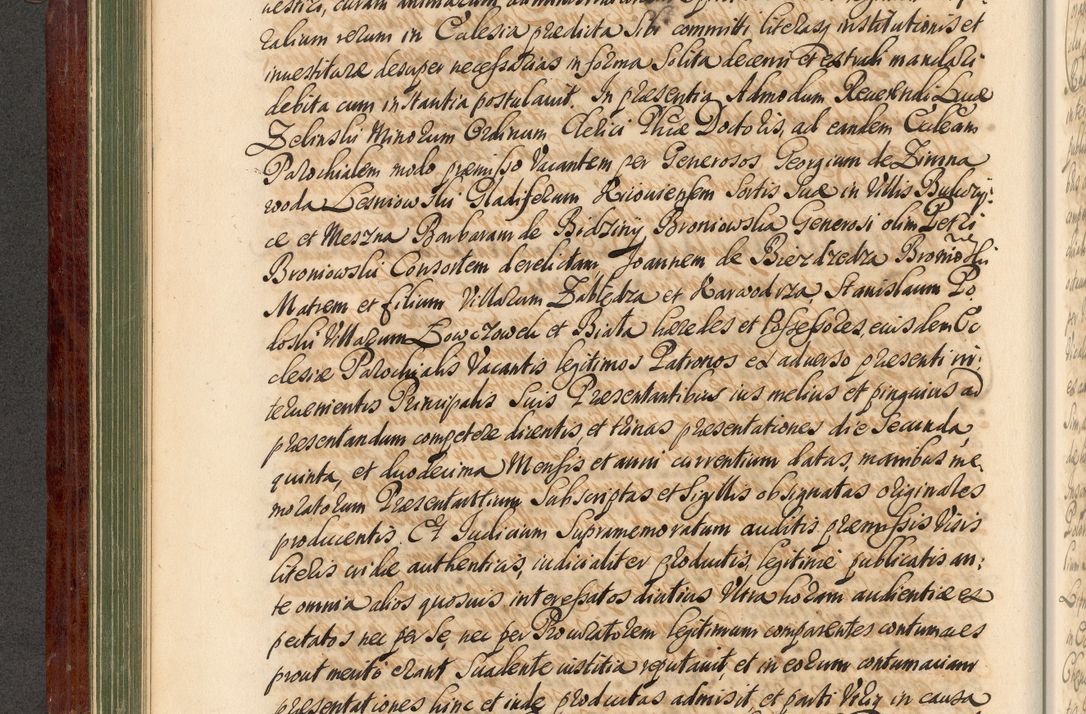 talium rerum in Ecclesia predicta Sibi committi literasq institutionis et
investituræ desuper necessarias in forma Solita decerni et extradi mandari
debita cum instantia postulavit. In præsentia Admodum Reverendi Lucæ
Zelinski Minorum Ordinum Clerici Phiæ Doctoris, ad eandem Eccleam
Parochialem modo præmisso Vacantem per Generosos Georgium de Zimna
wooda Lesniowski Gladiferum Kiioviensem Sortis Suæ in Villis Bukowi,
ce et Meszna Barbaram de Bidziny Broniowska Generosi olim Petri
Broniowski Consortem derelictam, Joannem de Bierzdzedza Broniowski
Matrem et filium Villarum Zabłędza et Karwodrza, Stanislaum Ro
loski Villarum Lowczowek et Biała hæredes et Possessores, eiusdem Ec
clesiæ Parochialis Vacantis legitimos Patronos ex adverso præsenti in,
tervenientis Principalis Suis Præsentantibus ius melius et pinguius ad
præsentandum competere dicentis, et trinas præsentationes die Secunda
quinta, et duodecima Mensis et anni currentium datas, manibus me,
moratorum Præsentantium Subscriptas et Sigillis obsignatas originales
producentis. Et Iudicium Supramemoratum auditis præmissis Visis
literis cridæ authenticis, iudicialiter productis, legitime publicatis an,
te omnia alios quosvis interessatos diutius Ultra horam audientiæ ex
pectatos nec per Se, nec per Procuratorem legitimum comparentes contumaces
prout merito erant Suadente iustitia reputavit, et in eorum contumaciam
præsentationes hinc et inde productas admisit, et parti Utriq in causa